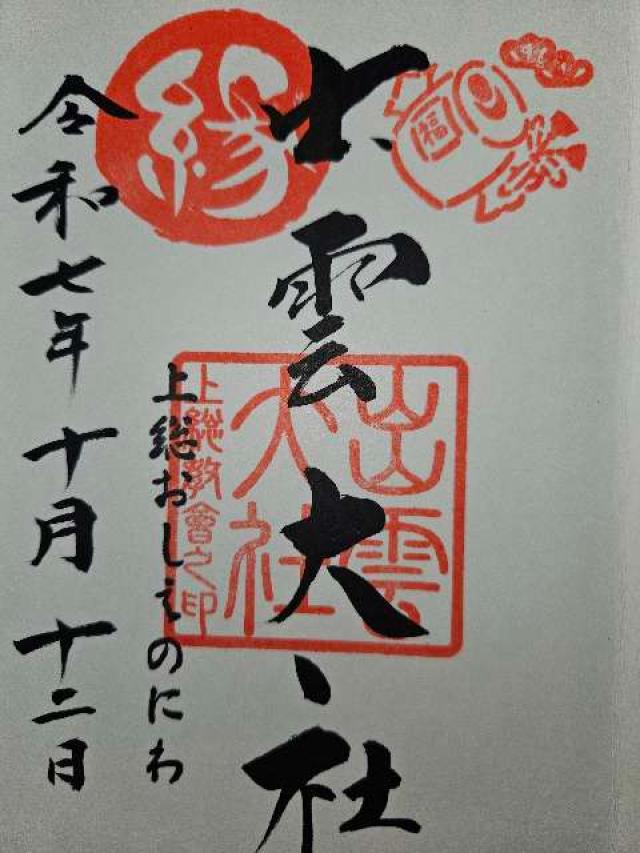 出雲大社
上総おしえのにわ
令和七年十月十二日
縁
福
出雲
大社
上総教會之印